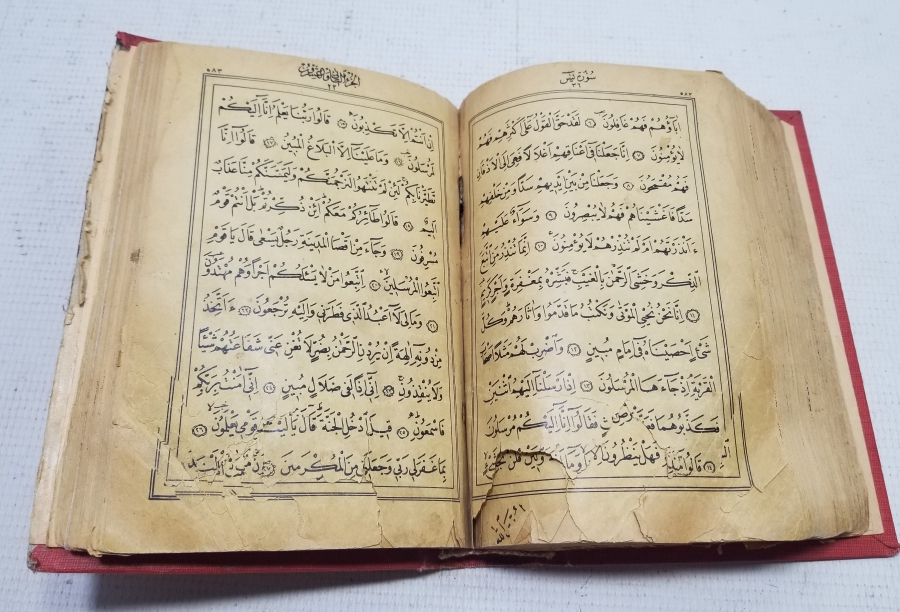 ٥٨٢
سورة يس
اٰبَاؤُهُمْ فَهُمْ غَافِلُونَ ٦ لَقَدْ حَقَّ الْقَوْلُ عَلٰى اَكْثَرِهِمْ فَهُمْ
لَا يُؤْمِنُونَ ٧ اِنَّا جَعَلْنَا فِى اَعْنَاقِهِمْ اَغْلَالًا فَهِىَ اِلَى الْاَذْقَانِ
فَهُمْ مُقْمَحُونَ ٨ وَجَعَلْنَا مِنْ بَيْنِ اَيْدِيهِمْ سَدًّا وَمِنْ خَلْفِهِمْ
سَدًّا فَاَغْشَيْنَاهُمْ فَهُمْ لَا يُبْصِرُونَ ٩ وَسَوَاءٌ عَلَيْهِمْ
ءَاَنْذَرْتَهُمْ اَمْ لَمْ تُنْذِرْهُمْ لَا يُؤْمِنُونَ ١٠ اِنَّمَا تُنْذِرُ مَنِ اتَّبَعَ
الذِّكْرَ وَخَشِىَ الرَّحْمٰنَ بِالْغَيْبِ فَبَشِّرْهُ بِمَغْفِرَةٍ وَاَجْرٍ كَرِيمٍ
١١ اِنَّا نَحْنُ نُحْيِى الْمَوْتٰى وَنَكْتُبُ مَا قَدَّمُوا وَاٰثَارَهُمْ وَكُلَّ
شَىْءٍ اَحْصَيْنَاهُ فِى اِمَامٍ مُبِينٍ ١٢ وَاضْرِبْ لَهُمْ مَثَلًا اَصْحَابَ
الْقَرْيَةِ اِذْ جَاءَهَا الْمُرْسَلُونَ ١٣ اِذْ اَرْسَلْنَا اِلَيْهِمُ اثْنَيْنِ
فَكَذَّبُوهُمَا فَقَالُوا اِنَّا اِلَيْكُمْ مُرْسَلُونَ
١٤ قَالُوا
٥٨٣
الجزء الثانى والعشرون
٢٢
اِنْ اَنْتُمْ اِلَّا تَكْذِبُونَ ١٥ قَالُوا رَبُّنَا يَعْلَمُ اِنَّا اِلَيْكُمْ
لَمُرْسَلُونَ ١٦ وَمَا عَلَيْنَا اِلَّا الْبَلَاغُ الْمُبِينُ ١٧ قَالُوا اِنَّا
تَطَيَّرْنَا بِكُمْ لَئِنْ لَمْ تَنْتَهُوا لَنَرْجُمَنَّكُمْ وَلَيَمَسَّنَّكُمْ مِنَّا عَذَابٌ
اَلِيمٌ ١٨ قَالُوا طَائِرُكُمْ مَعَكُمْ اَئِنْ ذُكِّرْتُمْ بَلْ اَنْتُمْ قَوْمٌ
مُسْرِفُونَ ١٩ وَجَاءَ مِنْ اَقْصَا الْمَدِينَةِ رَجُلٌ يَسْعٰى قَالَ يَا قَوْمِ
اتَّبِعُوا الْمُرْسَلِينَ ٢٠ اِتَّبِعُوا مَنْ لَا يَسْئَلُكُمْ اَجْرًا وَهُمْ مُهْتَدُونَ
٢١ وَمَا لِىَ لَا اَعْبُدُ الَّذِى فَطَرَنِى وَاِلَيْهِ تُرْجَعُونَ ٢٢ ءَاَتَّخِذُ
مِنْ دُونِهِ اٰلِهَةً اِنْ يُرِدْنِ الرَّحْمٰنُ بِضُرٍّ لَا تُغْنِ عَنِّى شَفَاعَتُهُمْ شَيْئًا
وَلَا يُنْقِذُونِ ٢٣ اِنِّى اِذًا لَفِى ضَلَالٍ مُبِينٍ ٢٤ اِنِّى اٰمَنْتُ بِرَبِّكُمْ
فَاسْمَعُونِ ٢٥ قِيلَ ادْخُلِ الْجَنَّةَ قَالَ يَا لَيْتَ قَوْمِى يَعْلَمُونَ ٢٦
بِمَا غَفَرَ لِى رَبِّى وَجَعَلَنِى مِنَ الْمُكْرَمِينَ